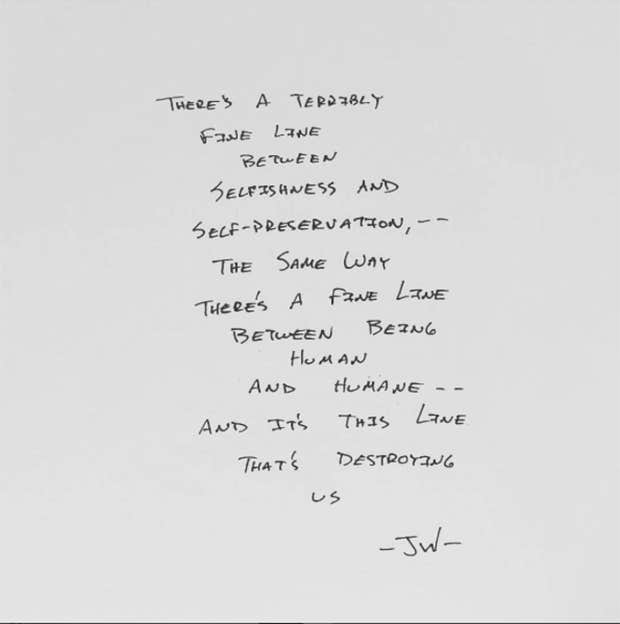 THERE'S A TERRIBLY
FINE LINE
BETWEEN
SELFISHNESS AND
SELF-PRESERVATION,--
THE SAME WAY
THERE'S A FINE LINE
BETWEEN BEING
HUMAN
AND HUMANE --
AND IT'S THIS LINE
THAT'S DESTROYING
US
-JW-